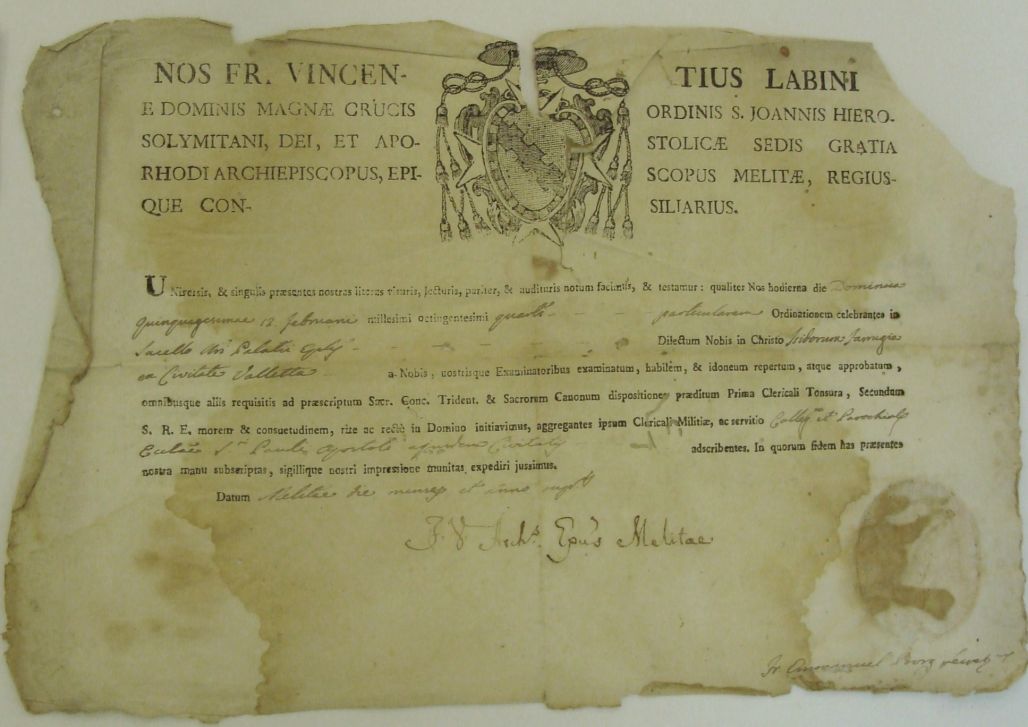 NOS FR. VINCEN- TIUS LABINI
E DOMINIS MAGNÆ CRUCIS ORDINIS S. JOANNIS HIERO-
SOLYMITANI, DEI, ET APO- STOLICÆ SEDIS GRATIA
RHODI ARCHIEPISCOPUS, EPI- SCOPUS MELITÆ, REGIUS-
QUE CON- SILIARIUS.
UNiversis, & singulis præsentes nostras literas visuris, lecturis, pariter, & audituris notum facimus, & testamur: qualiter Nos hodierna die Dominica
Quinquagesimae 12. Februarii millesimi octingentesimi quarti - - - - particularem Ordinationem celebrantes in
Sacello Palatii - - - - - - - Dilectum Nobis in Christo Isidorum Farrugia
ex Civitate Valletta - a Nobis, nostrisque Examinatoribus examinatum, habilem, & idoneum repertum, atque approbatum,
omnibusque aliis requisitis ad præscriptum Sacr. Conc. Trident. & Sacrorum Canonum dispositione, præditum Prima Clericali Tonsura, Secundum
S. R. E. morem & consuetudinem, rite ac rectè in Domino initiavimus, aggregantes ipsum Clericali Militiæ, ac servitio et
Pauli adscribentes. In quorum fidem has præsentes
nostra manu subscriptas, sigillique nostri impressione munitas expediri jussimus.
Datum Melitae die et anno
F. V. Melitae